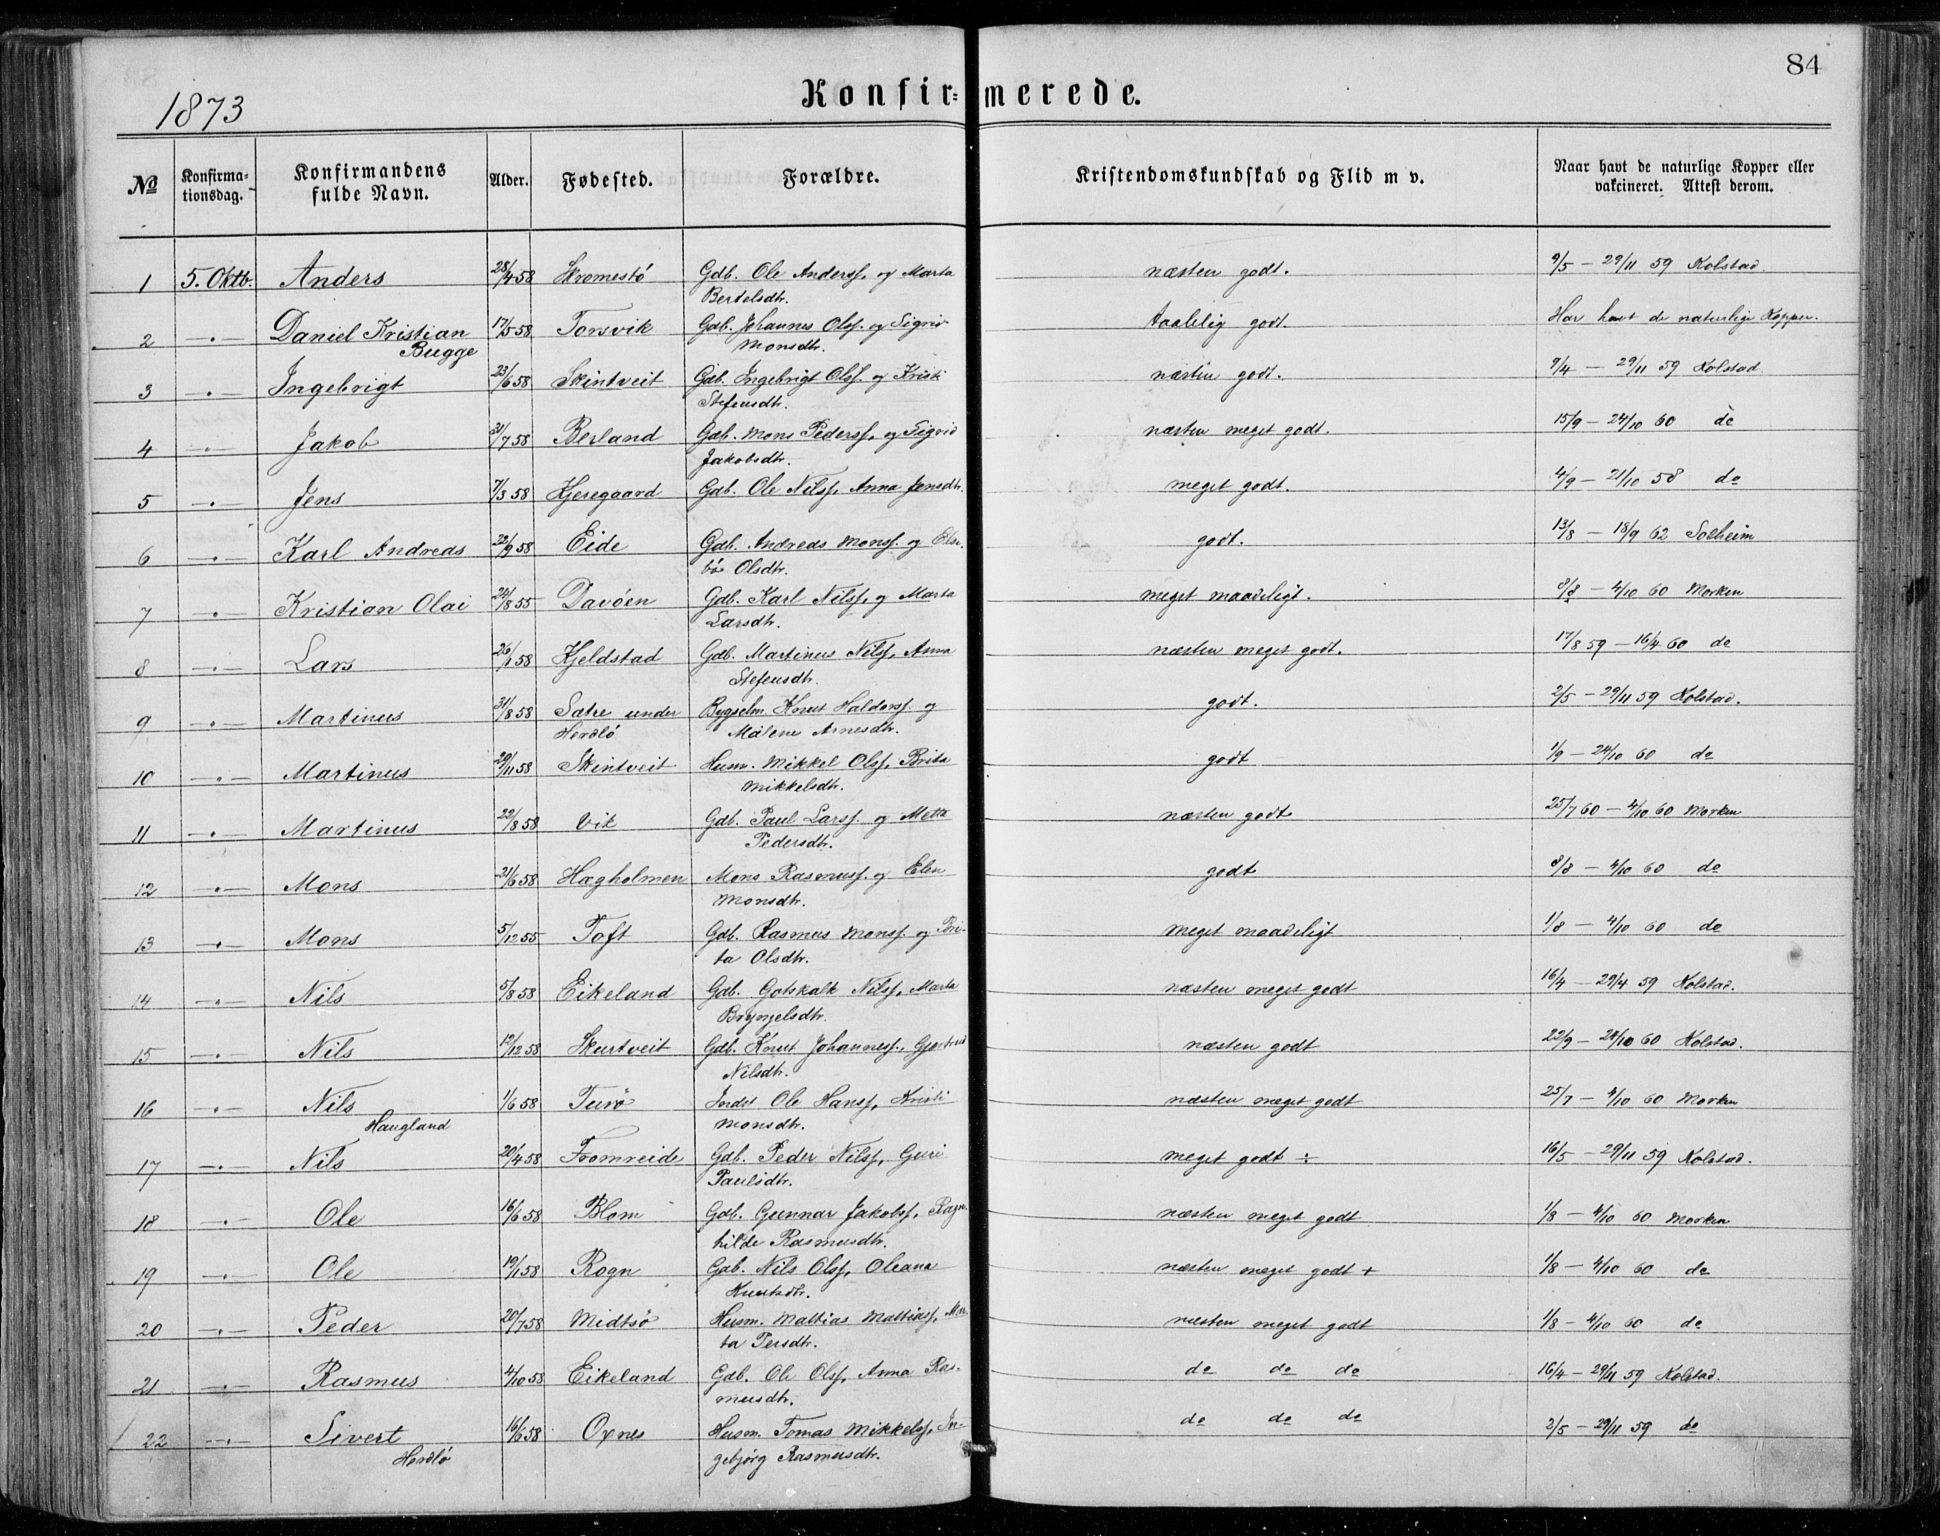 84
1873 Konfir= merede.
№ Konfirma-tionsdag. Konfirmandens fulde Navn. Alder. Fødested. Forældre. Kristendomskundskab og Flid m v. Naar havt de naturlige Kopper eller vakcineret. Attest derom.
1 5. Oktb. Anders 28/4 58 Skromestö Gdb. Ole Andersf. og Marta næsten godt. 9/5 — 29/11 59 Kolstad.
Bertelsdtr.
2 —〃— Daniel Kristian 17/5 58 Torsvik Gdb. Johannes Olsf. og Sigrid taalelig godt. Har havt de naturlige Kopper.
Bugge Monsdtr.
3 —〃— Ingebrigt 23/6 58 Skintveit Gdb. Ingebrigt Olsf. og Kristi næsten godt. 9/4 — 29/11 59 Kolstad
Stefensdtr.
4 —〃— Jakob 31/7 58 Berland Gdb. Mons Pedersf. og Sigrid næsten meget godt. 15/9 — 24/10 60 do
Jakobsdtr.
5 —〃— Jens 7/3 58 Kjeregaard Gdb. Ole Nilsf, Anna Jensdtr. meget godt. 4/9 — 21/10 58 do
6 —〃— Karl Andreas 22/9 58 Eide Gdb. Andreas Monsf. og Elm- godt. 13/8 — 18/9 62 Solheim
bör Olsdtr.
7 —〃— Kristian Olai 24/8 55 Davöen Gdb. Karl Nilsf, og Marta meget maadeligt. 8/8 — 4/10 60 Morken
Larsdtr.
8 —〃— Lars 26/1 58 Kjeldstad Gdb. Martinus Nilsf, Anna næsten meget godt. 17/8 59 — 16/4 60 do
Stefensdtr.
9 —〃— Martinus 31/8 58 Sætre under Bygselm. Knut Haldorsf. og godt. 2/5 — 29/11 59 Kolstad.
Herdlö Malene Arnesdtr.
10 —〃— Martinus 29/11 58 Skintveit Husm. Mikkel Olsf, Brita godt 1/9 — 24/10 60 do
Mikkelsdtr.
11 —〃— Martinus 22/8 58 Vik Gdb. Paul Larsf. og Metta næsten godt 25/7 60 — 4/10 60 Morken
Pedersdtr.
12 —〃— Mons 21/6 58 Hægholmen Mons Rasmusf. og Elen godt 8/8 — 4/10 60 do
Monsdtr.
13 —〃— Mons 5/12 55 Toft Gdb. Rasmus Monsf. og Bri- meget maadeligt 1/8 — 4/10 60 do
ta Olsdtr.
14 —〃— Nils 5/8 58 Eikeland Gdb. Gotskalk Nilsf, Marta næsten meget godt 16/4 — 29/4 59 Kolstad.
Brynjelsdtr.
15 —〃— Nils 12/12 58 Skurtveit Gdb. Knut Johannesf, Gjertrud næsten godt 22/9 — 24/10 60 Kolstad.
Nilsdtr.
16 —〃— Nils 1/6 58 Turö Inds Ole Hansf, Kristi næsten meget godt 25/7 — 4/10 60 Morken
Haugland Monsdtr.
17 —〃— Nils 20/4 58 Fromreide Gdb. Peder Nilsf, Guri meget godt ÷ 16/5 — 29/11 59 Kolstad.
Paulsdtr.
18 —〃— Ole 16/6 58 Blom Gdb. Gunnar Jakobsf, Ragn- næsten meget godt 1/8 — 4/10 60 Morken
hilde Rasmusdtr.
19 —〃— Ole 19/1 58 Rogn Gdb. Nils Olsf, Oleana næsten meget godt + 1/8 — 4/10 60 do
Knutsdtr.
20 —〃— Peder 20/7 58 Midtsö Husm. Mathias Mathiasf, Mar- næsten meget godt 1/8 — 4/10 60 do
ta Persdtr.
21 —〃— Rasmus 4/10 58 Eikeland Gdb. Ole Olsf, Anna Ras- do do do 16/4 — 29/11 59 Kolstad.
musdtr.
22 —〃— Sivert 16/6 58 Oxnes Husm. Tomas Mikkelsf, In- do do do 2/5 — 29/11 59 do
Herdlö gebjörg Rasmusdtr.